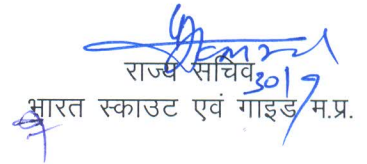 राज्य सचिव
30/9
भारत स्काउट एवं गाइड, म.प्र.